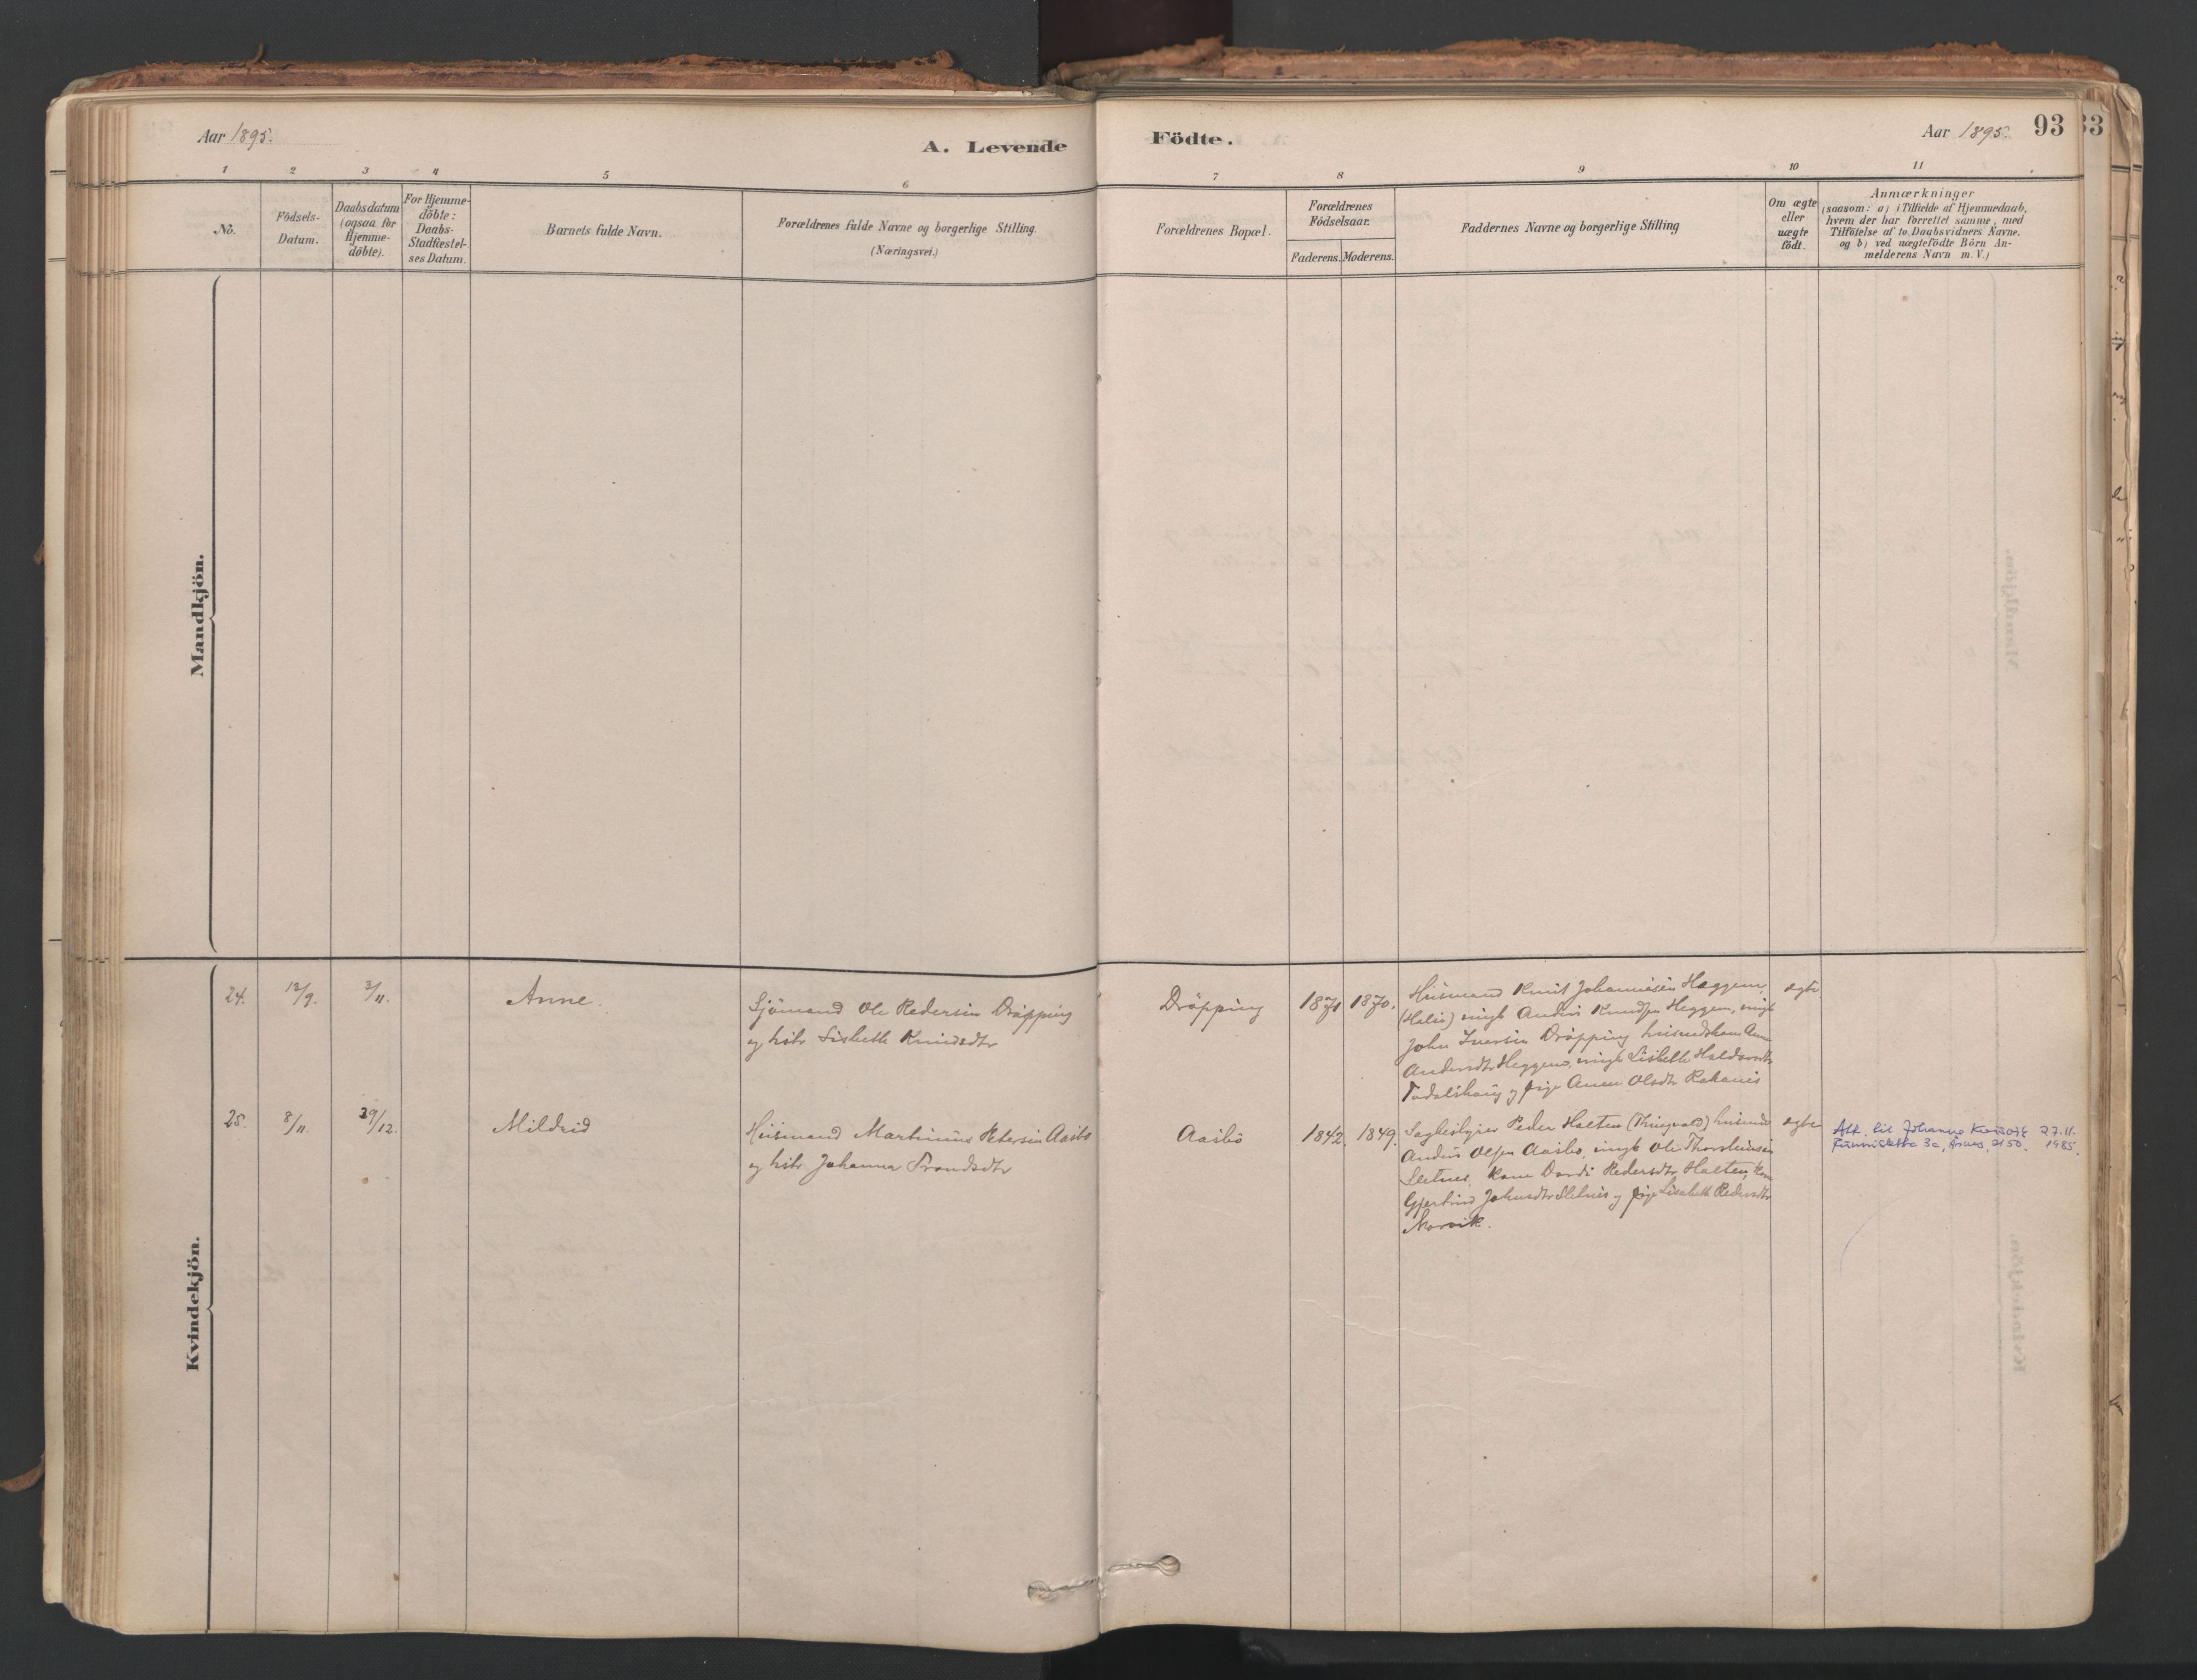 Aar 1895.
A. Levende
Födte.
Aar 1895.
93
33
1 2 3 4 5 6 7 8 9 10 11
No.
Födsels-
Datum.
Daabsdatum
(ogsaa for
Hjemme-
döbte).
For Hjemme-
döbte:
Daabs-
Stadfæstel-
ses Datum.
Barnets fulde Navn.
Forældrenes fulde Navne og borgerlige Stilling.
(Næringsvei.)
Forældrenes Bopæl.
Forældrenes
Födselsaar.
Faderens. Moderens.
Faddernes Navne og borgerlige Stilling
Om ægte
eller
uægte
födt.
Anmærkninger
(saasom: a) i Tilfælde af Hjemmedaab,
hvem der har forrettet samme, med
Tilföielse af to Daabsvidners Navne.
og b) ved uægtefödte Börn An-
melderens Navn m. V.)
Mandkjön.
Kvindekjön.
24. 13/9. 3/11. Anne.
Sjömand Ole Pedersen Dröpping
og hstr Lisbeth Knudsdtr
Dröpping 1871 1870.
Husmand Knut Johannesen Heggem,
(Halsa) ungk Anders Knudsen Heggem, ungk
John Iversen Dröpping husmandskone Anne
Andersdtr Heggem, Lisbeth
og pige Olsdtr
ægte
25. 8/11 29/12. Mildrid
Husmand Martinus Petersen Aasbö
og hstr Johanna Trondsdtr
Aasbö 1842. 1849.
Peder Halten (Thingvold) husmd
Anders Olsen Aasbö, ungk Ole Thorsteinsen
Sletnes, kone Dordi Pedersdtr Halten, kone
Gjertrud Johnsdtr Sletnes og pige Lisabeth Pedersdtr
Norvik.
ægte
Att. til Johanne 27.11.
3c, Årnes, 2150. 1985.